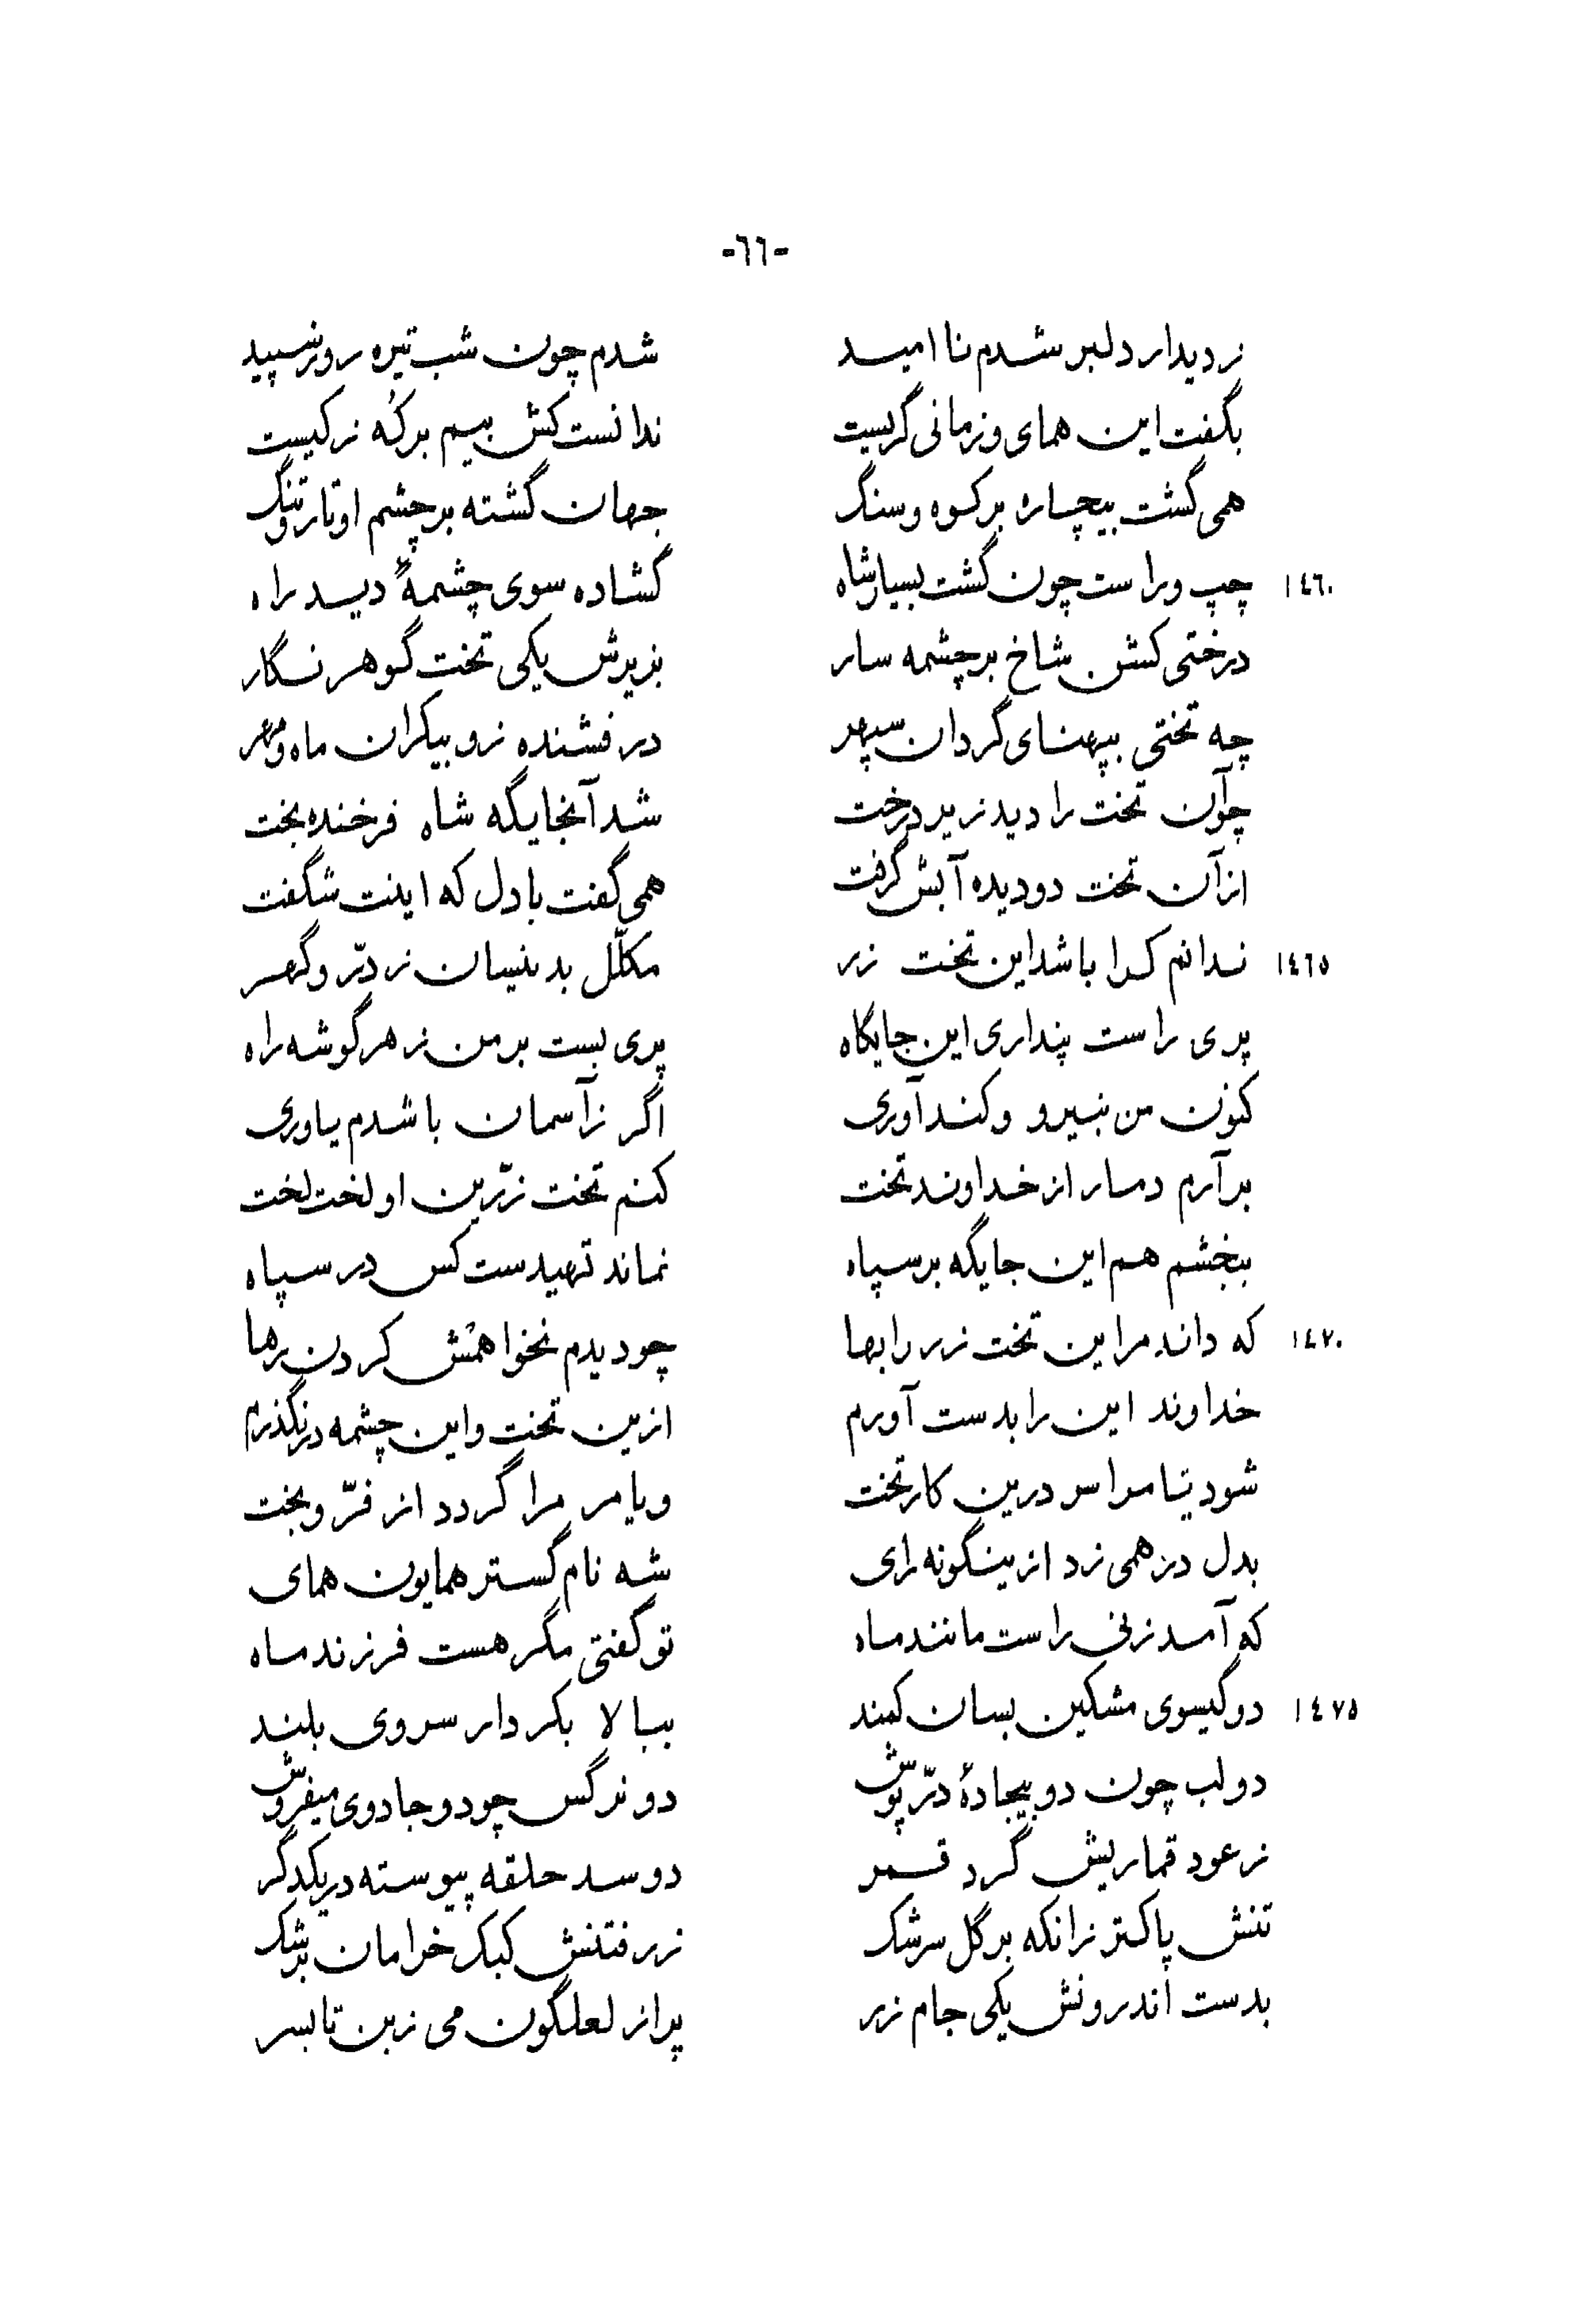 -٦٦-
ز دیدار دلبر شدم نا امید شدم چون شب تیره روز سپید
بگفت این همای و زمانی گریست ندانست کش بیم بر که ز کیست
همی گشت بیچاره بر کوه و سنگ جهان گشته بر چشم او تار و تنگ
١٤٦٠ چپ و راست چون گشت بسیار شاه گشاده سوی چشمهٔ دید راه
درختی کشن شاخ بر چشمه سار بزیرش یکی تخت گوهر نگار
چه تختی بپهنای گردان سپهر درفشنده زو بیکران ماه و مهر
چو آن تخت را دید زیر درخت شد آنجایگه شاه فرخنده بخت
از آن تخت دو دیده آبش گرفت همی گفت با دل که اینت شگفت
١٤٦٥ ندانم کرا باشد این تخت زر مکلّل بدینسان ز درّ و گهر
پری راست پنداری این جایگاه پری بست بر من ز هر گوشه راه
کنون من بنیرو و کندآوری اگر ز آسمان باشدم یاوری
بر آرم دمار از خداوند تخت کنم تخت زرّین او لخت لخت
ببخشم هم این جایگه بر سپاه نماند تهیدست کس در سپاه
١٤٧٠ که داند مر این تخت زر را بها چو دیدم نخواهمش کردن رها
خداوند این را بدست آورم ازین تخت و این چشمه در نگذرم
شود یا مرا سر درین کار تخت و یا مر مرا گردد از فرّ و بخت
بدل در همی زد ازینگونه رای شه نام گستر همایون همای
که آمد زنی راست مانند ماه تو گفتی مگر هست فرزند ماه
١٤٧٥ دو گیسوی مشکین بسان کمند ببالا بکردار سروی بلند
دو لب چون دو بیجادهٔ درّ پوش دو نرگس چو دو جادوی میفروش
ز عود قماریش گرد قمر دو سد حلقه پیوسته در یکدگر
تنش پاکتر زانکه بر گل سرشک ز رفتنش کبک خرامان برشک
بدست اندرونش یکی جام زر پر از لعلگون می ز بن تا بسر